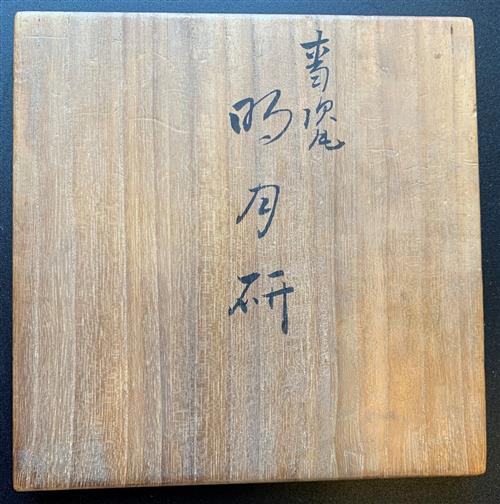 青瓷
明月研